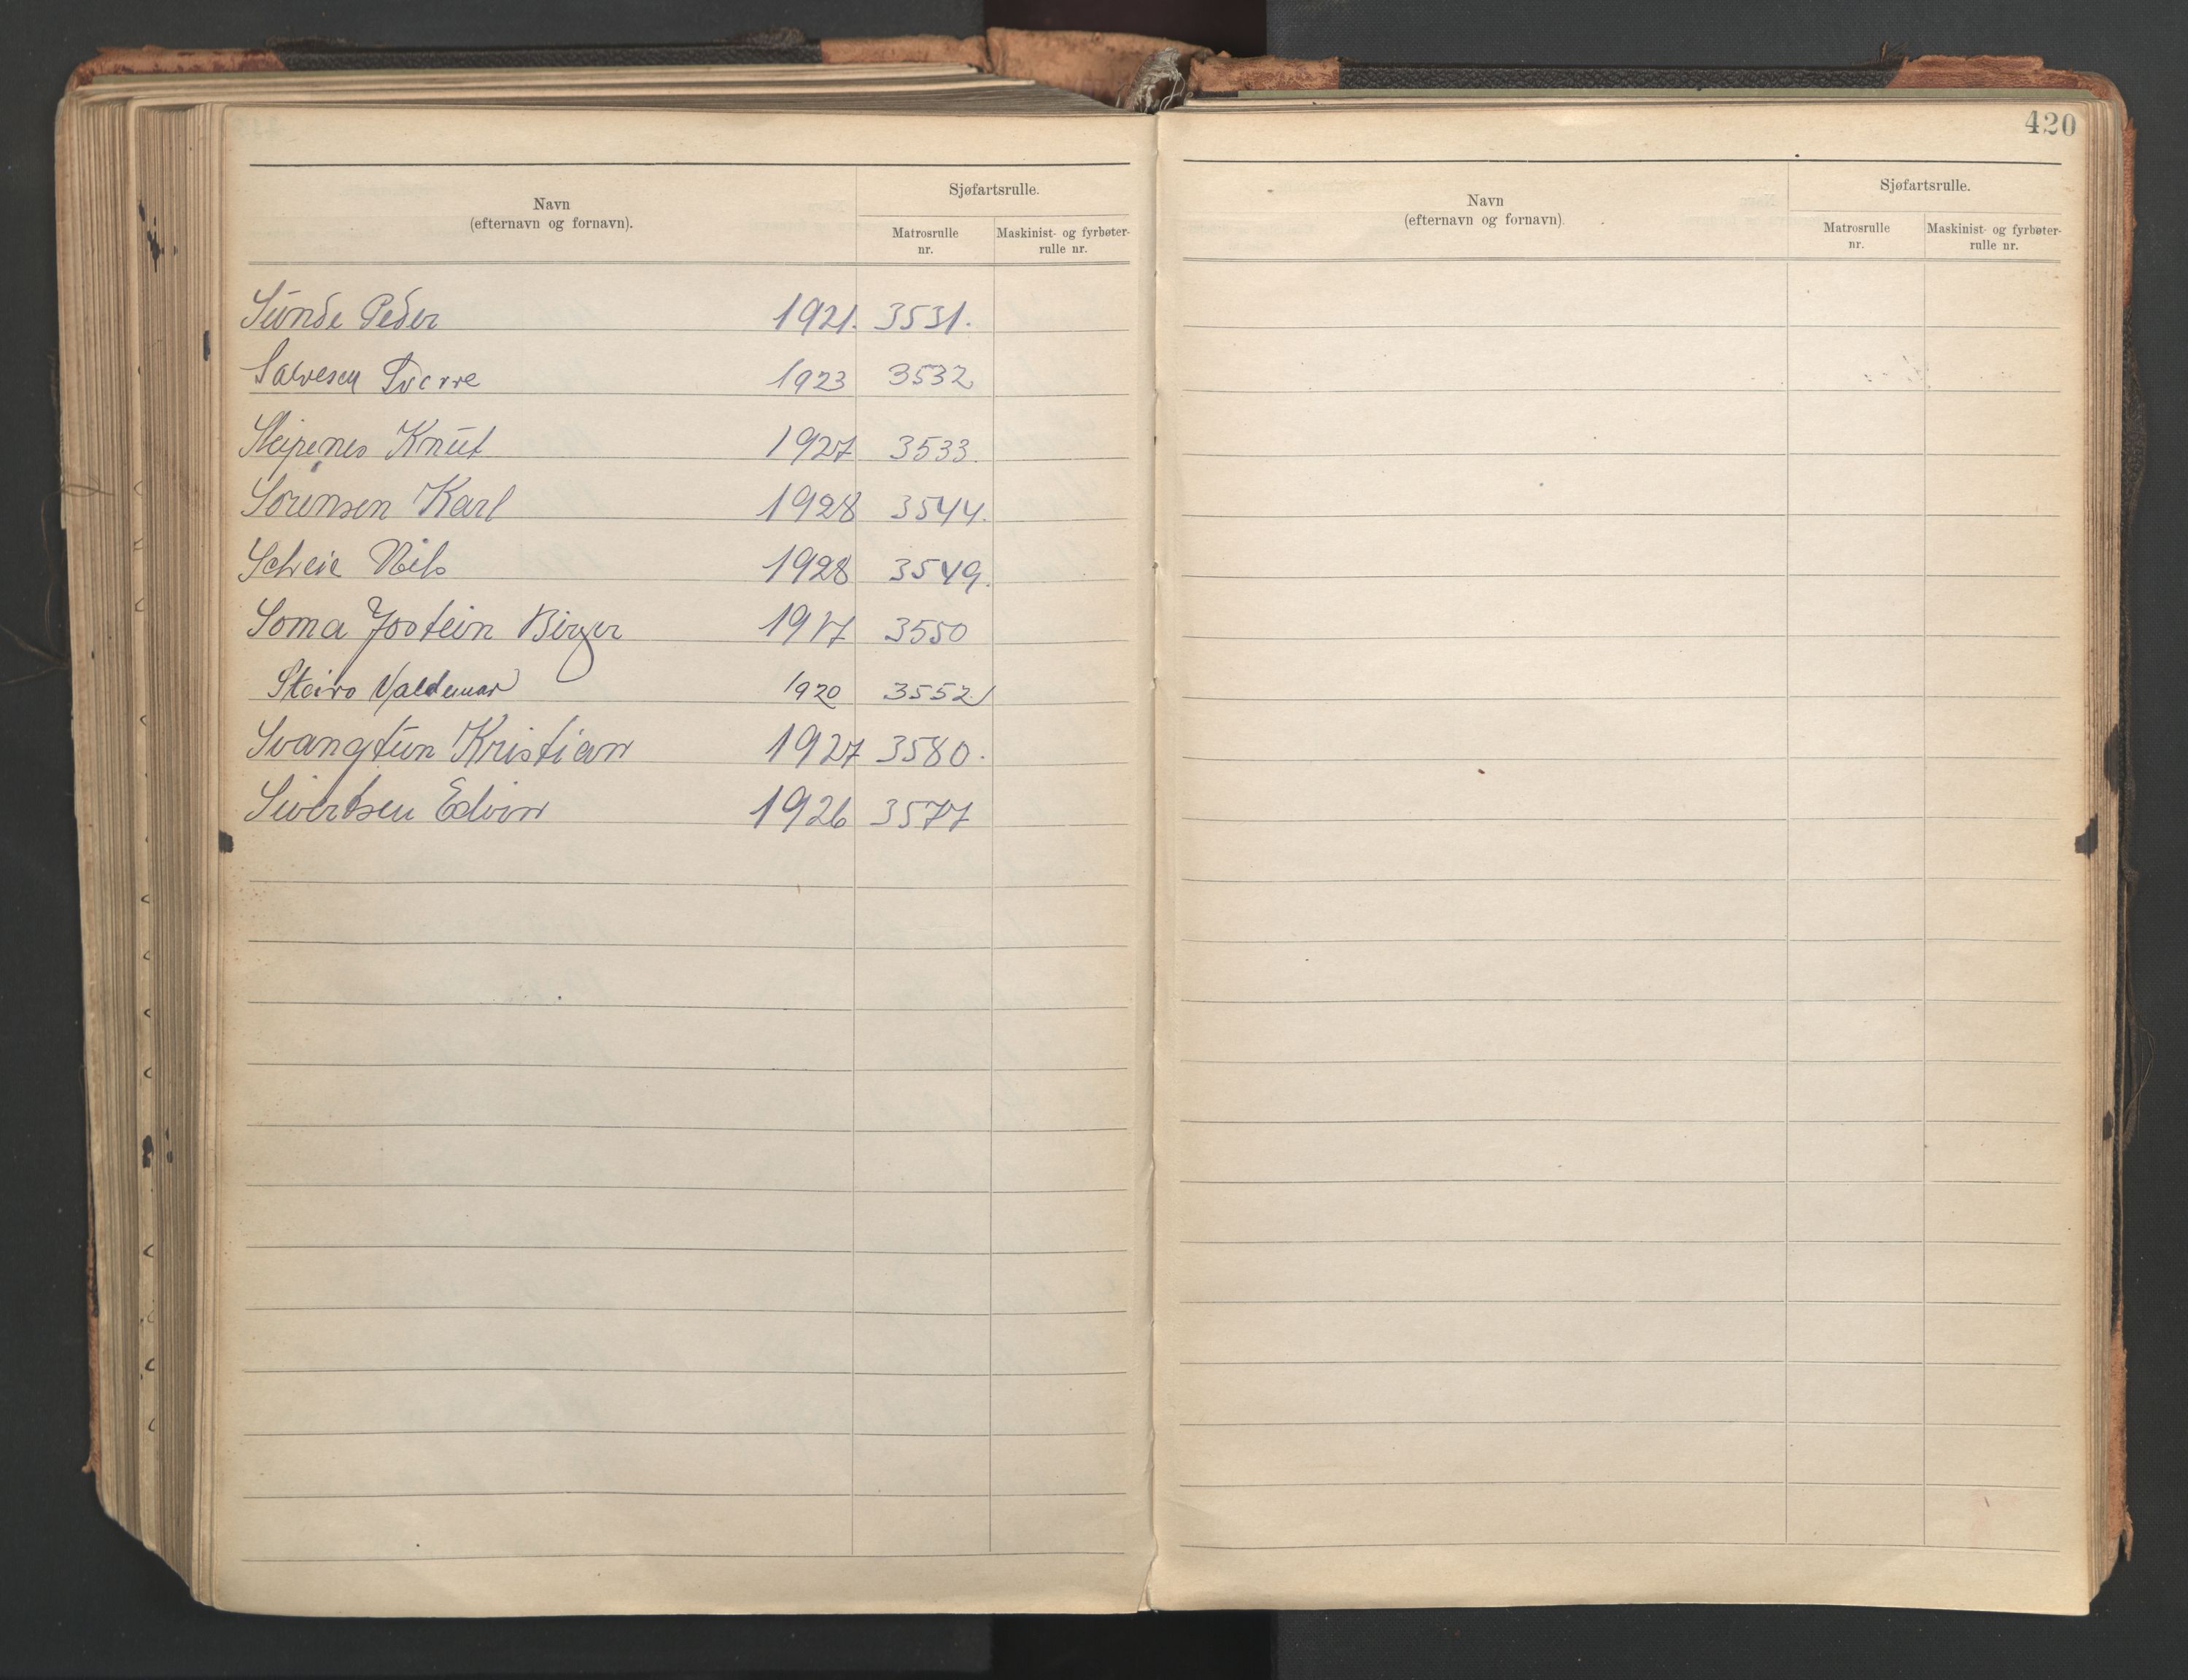 Navn
(efternavn og fornavn).
Sjøfartsrulle.
Matrosrulle
nr.
Maskinist- og fyrbøter-
rulle nr.
Sunde Peder 1921. 3531.
Salvesen Sverre 1923 3532
Knut 1927 3533.
Sørensen Karl 1928 3544.
Scheie Nils 1928 3549.
Soma Jostein Birger 1917 3550
Steiro Valdemar 1920 3552
Svangtun Kristian 1927 3580.
Sivertsen Edvin 1926 3577
420
Navn
(efternavn og fornavn).
Sjøfartsrulle.
Matrosrulle
nr.
Maskinist- og fyrbøter-
rulle nr.